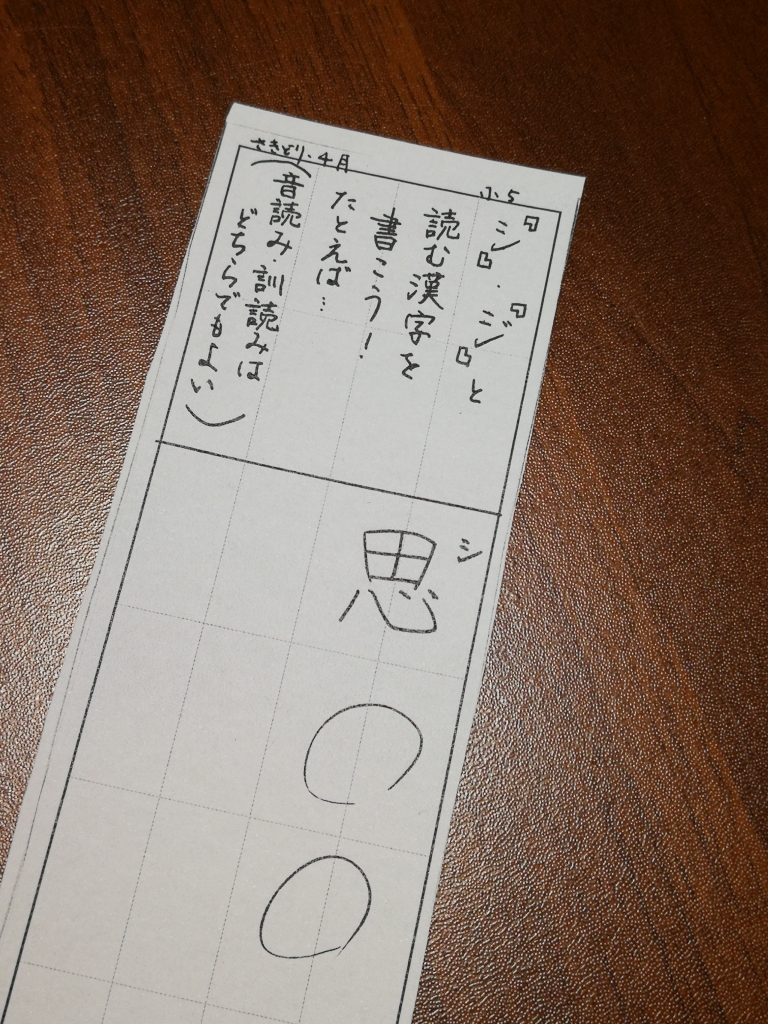 さきどり・4月
小5
『シ』・『ジ』と
読む漢字を
書こう!
たとえば…
(音読み・訓読みは
どちらでもよい)
シ
思
〇
〇